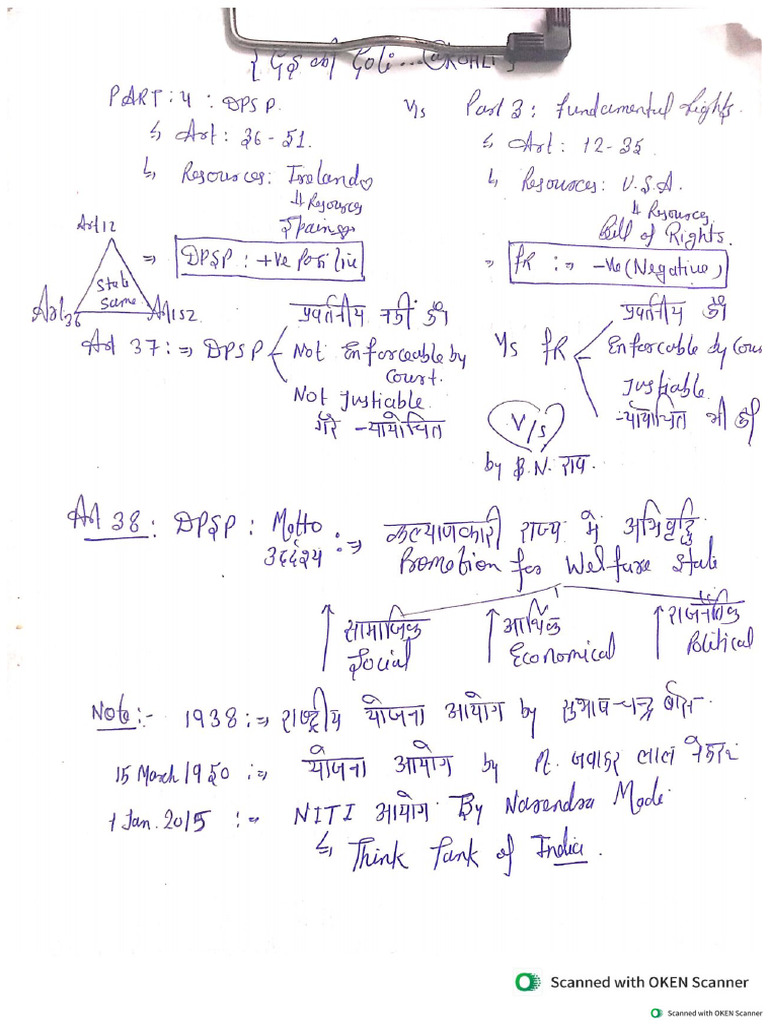 { GS की Goli... @ROHLI }
PART: 4 : DPSP. V/s Part 3: Fundamental Rights.
↳ Art: 36-51. ↳ Art: 12-35.
↳ Resources: Ireland ↳ Resources: U.S.A.
# Resources # Resources
Spain Bill of Rights.
Art 12
State Same
Art 36 Art 152
⇒ DPSP: +ve Positive = FR :→ -ve (Negative)
प्रवर्तनीय नहीं है। प्रवर्तनीय है।
Art 37 :⇒ DPSP Not Enforceable by Court. V/s FR Enforcable by Cou
Not Justiable. Justiable
गैर न्यायोचित न्यायोचित भी है
V/s
by B.N. राव.
Art 38 : DPSP : Motto :⇒ कल्याणकारी राज्य में अभिवृद्धि
उद्देश्य Promotion for Welfare State
↑ सामाजिक ↑ आर्थिक ↑ राजनीतिक
Social Economical Political
Note:- 1938 :⇒ राष्ट्रीय योजना आयोग by सुभाष चन्द्र बोस
15 March 1950 :⇒ योजना आयोग by Pt. जवाहर लाल नेहरू
1 Jan. 2015 :⇒ NITI आयोग By Narendra Modi
↳ Think Tank of India.
Scanned with OKEN Scanner
Scanned with OKEN Scanner